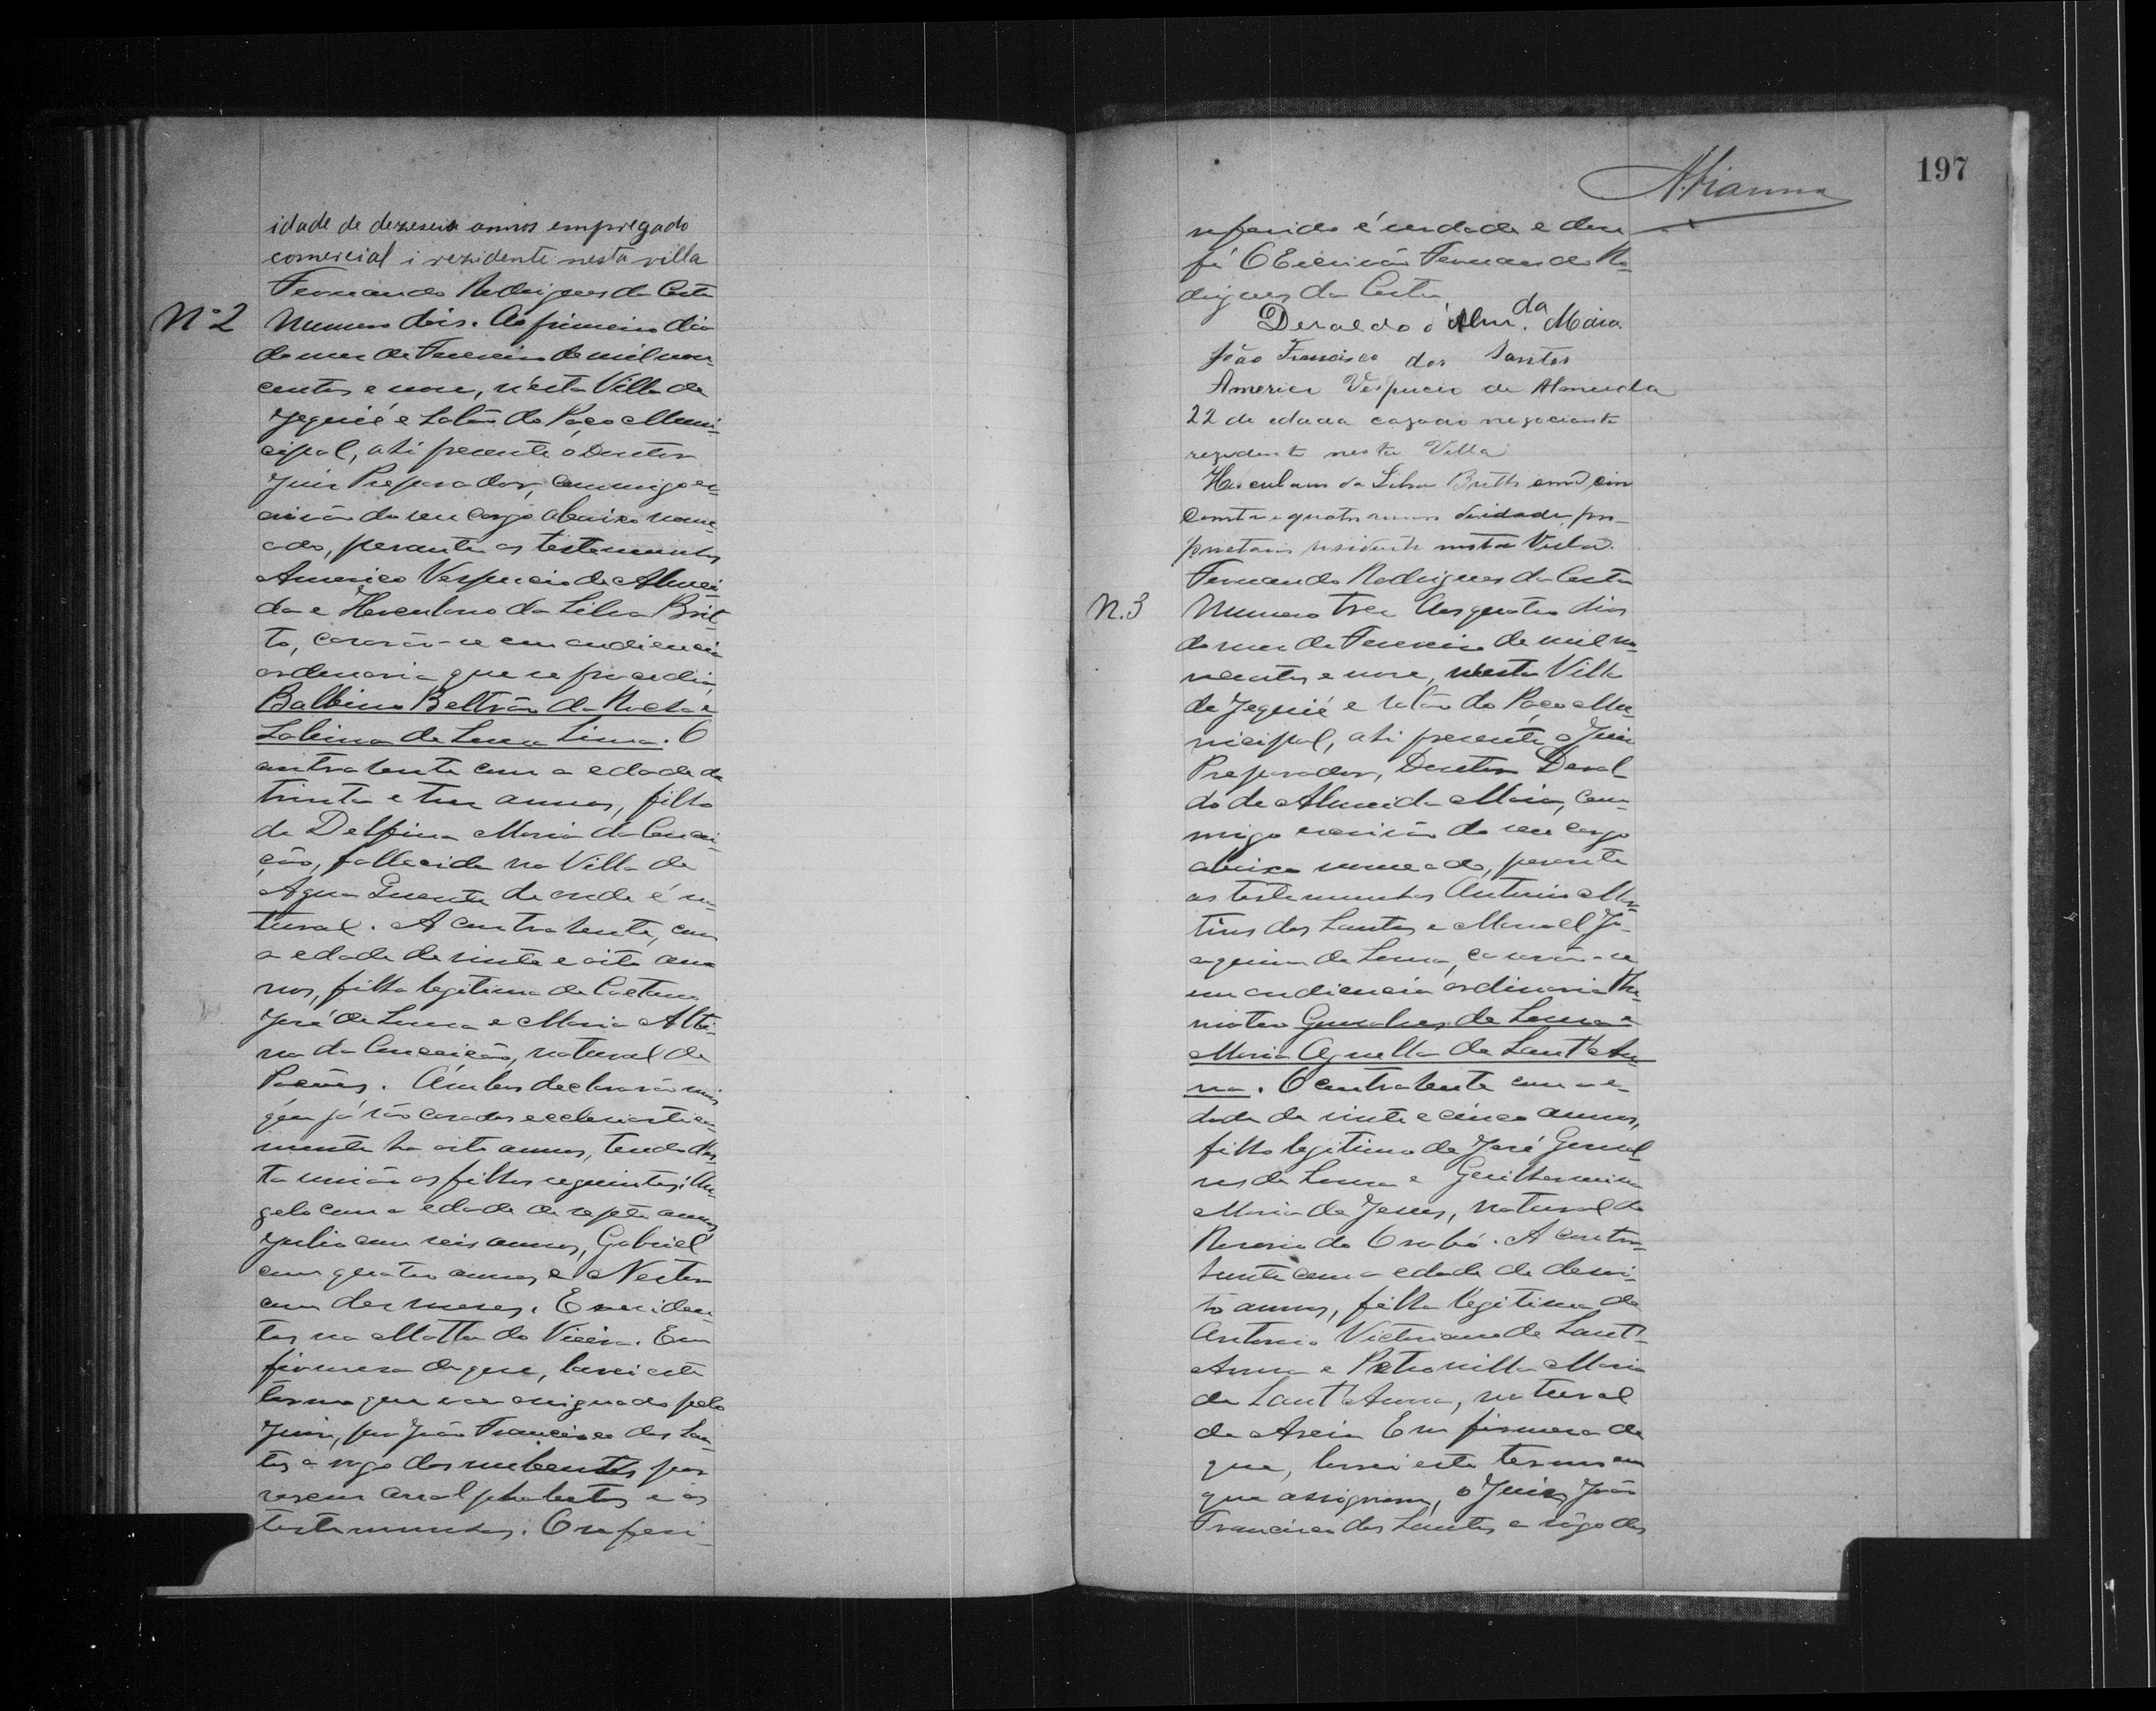 idade de dezeseis annos empregado
comercial i rezidente nesta villa
Fernando Rodrigues da Costa
Nº 2 Numero dois. Ao primeiro dia
do mez de Fevereiro de mil nove
centos e nove, n'esta Villa de
Jequié e Salão do Paço Muni-
cipal, ahi presente o Doutor
Juiz Preparador, commigo es-
crivão do seu cargo abaixo nome-
ado, perante as testemunhas
Americo Vespucio de Almei-
da e Herculano da Silva Brit-
to, casarão-se em audiencia
ordenaria que se procedia,
Balbino Beltrão da Rocha e
Sabina de Souza Lima. O
contratente com a edade de
trinta e tres annos, filho
de Delfina Maria da Concei-
ção, fallecida na Villa de
Agua Quente de onde é na-
tural. A contratente, com
a edade de vinte e oito an-
nos, filha legitima de Caetano
José de Souza e Maria Alti-
na da Conceição, natural de
Poções. Ambos declararão
que já são casados ecclesiastica-
mente ha oito annos, tendo des-
ta união os filhos seguintes: An-
gelo com a edade de septe annos
Julio com seis annos, Gabriel
com quatro annos e Nestor
com dez mezes. E residen-
tes na Matta do Vieira. Em
firmesa de que, lavrei este
termo que vae assignado pelo
Juiz, por João Francisco dos San-
tos a rogo dos nubentes por
serem analphabetos e as
testemunhas. O referi-
197
referido é verdade e dou
fé O Escrivão Fernando Ro-
drigues da Costa
Deraldo d'Alm.da Maia
João Francisco dos Santos
Americo Vespucio de Almeida
22 de edade cazado negociante
rezidente nesta Villa
Herculano da Silva Britto com cin
coenta e quatro annos de idade, pro-
prietario residente nesta Villa.
Fernando Rodrigues da Costa
N. 3 Numero tres Aos quatro dias
do mez de Fevereiro de mil no-
vecentos e nove, nesta Villa
de Jequié e salão do Paço Mu-
nicipal, ahi presente o Juiz
Preparador, Doutor Deral-
do de Almeida Maia, com-
migo escrivão do seu cargo
abaixo nomeado, perante
as testemunhas Antonio Mar-
tins dos Santos e Manoel Jo-
aquim de Souza, casarão-se
em audiencia ordinaria Thi-
moteo Gonsalves de Souza e
Maria Agnella de Sant'An-
na. O contratente com a e-
dade de vinte e cinco annos,
filho legitimo de José Gonsal-
ves de Souza e Guilhermina
Maria de Jesus, natural do
Rosario do Orobó. A contra-
tente com a edade de desoi-
to annos, filha legitima de
Antonio Victoriano de Sant'
Anna e Petronilla Maria
de Sant'Anna, natural
de Areia Em firmesa de
que, lavrei este termo em
que assignam, o Juiz, João
Francisco dos Santos a rogo dos